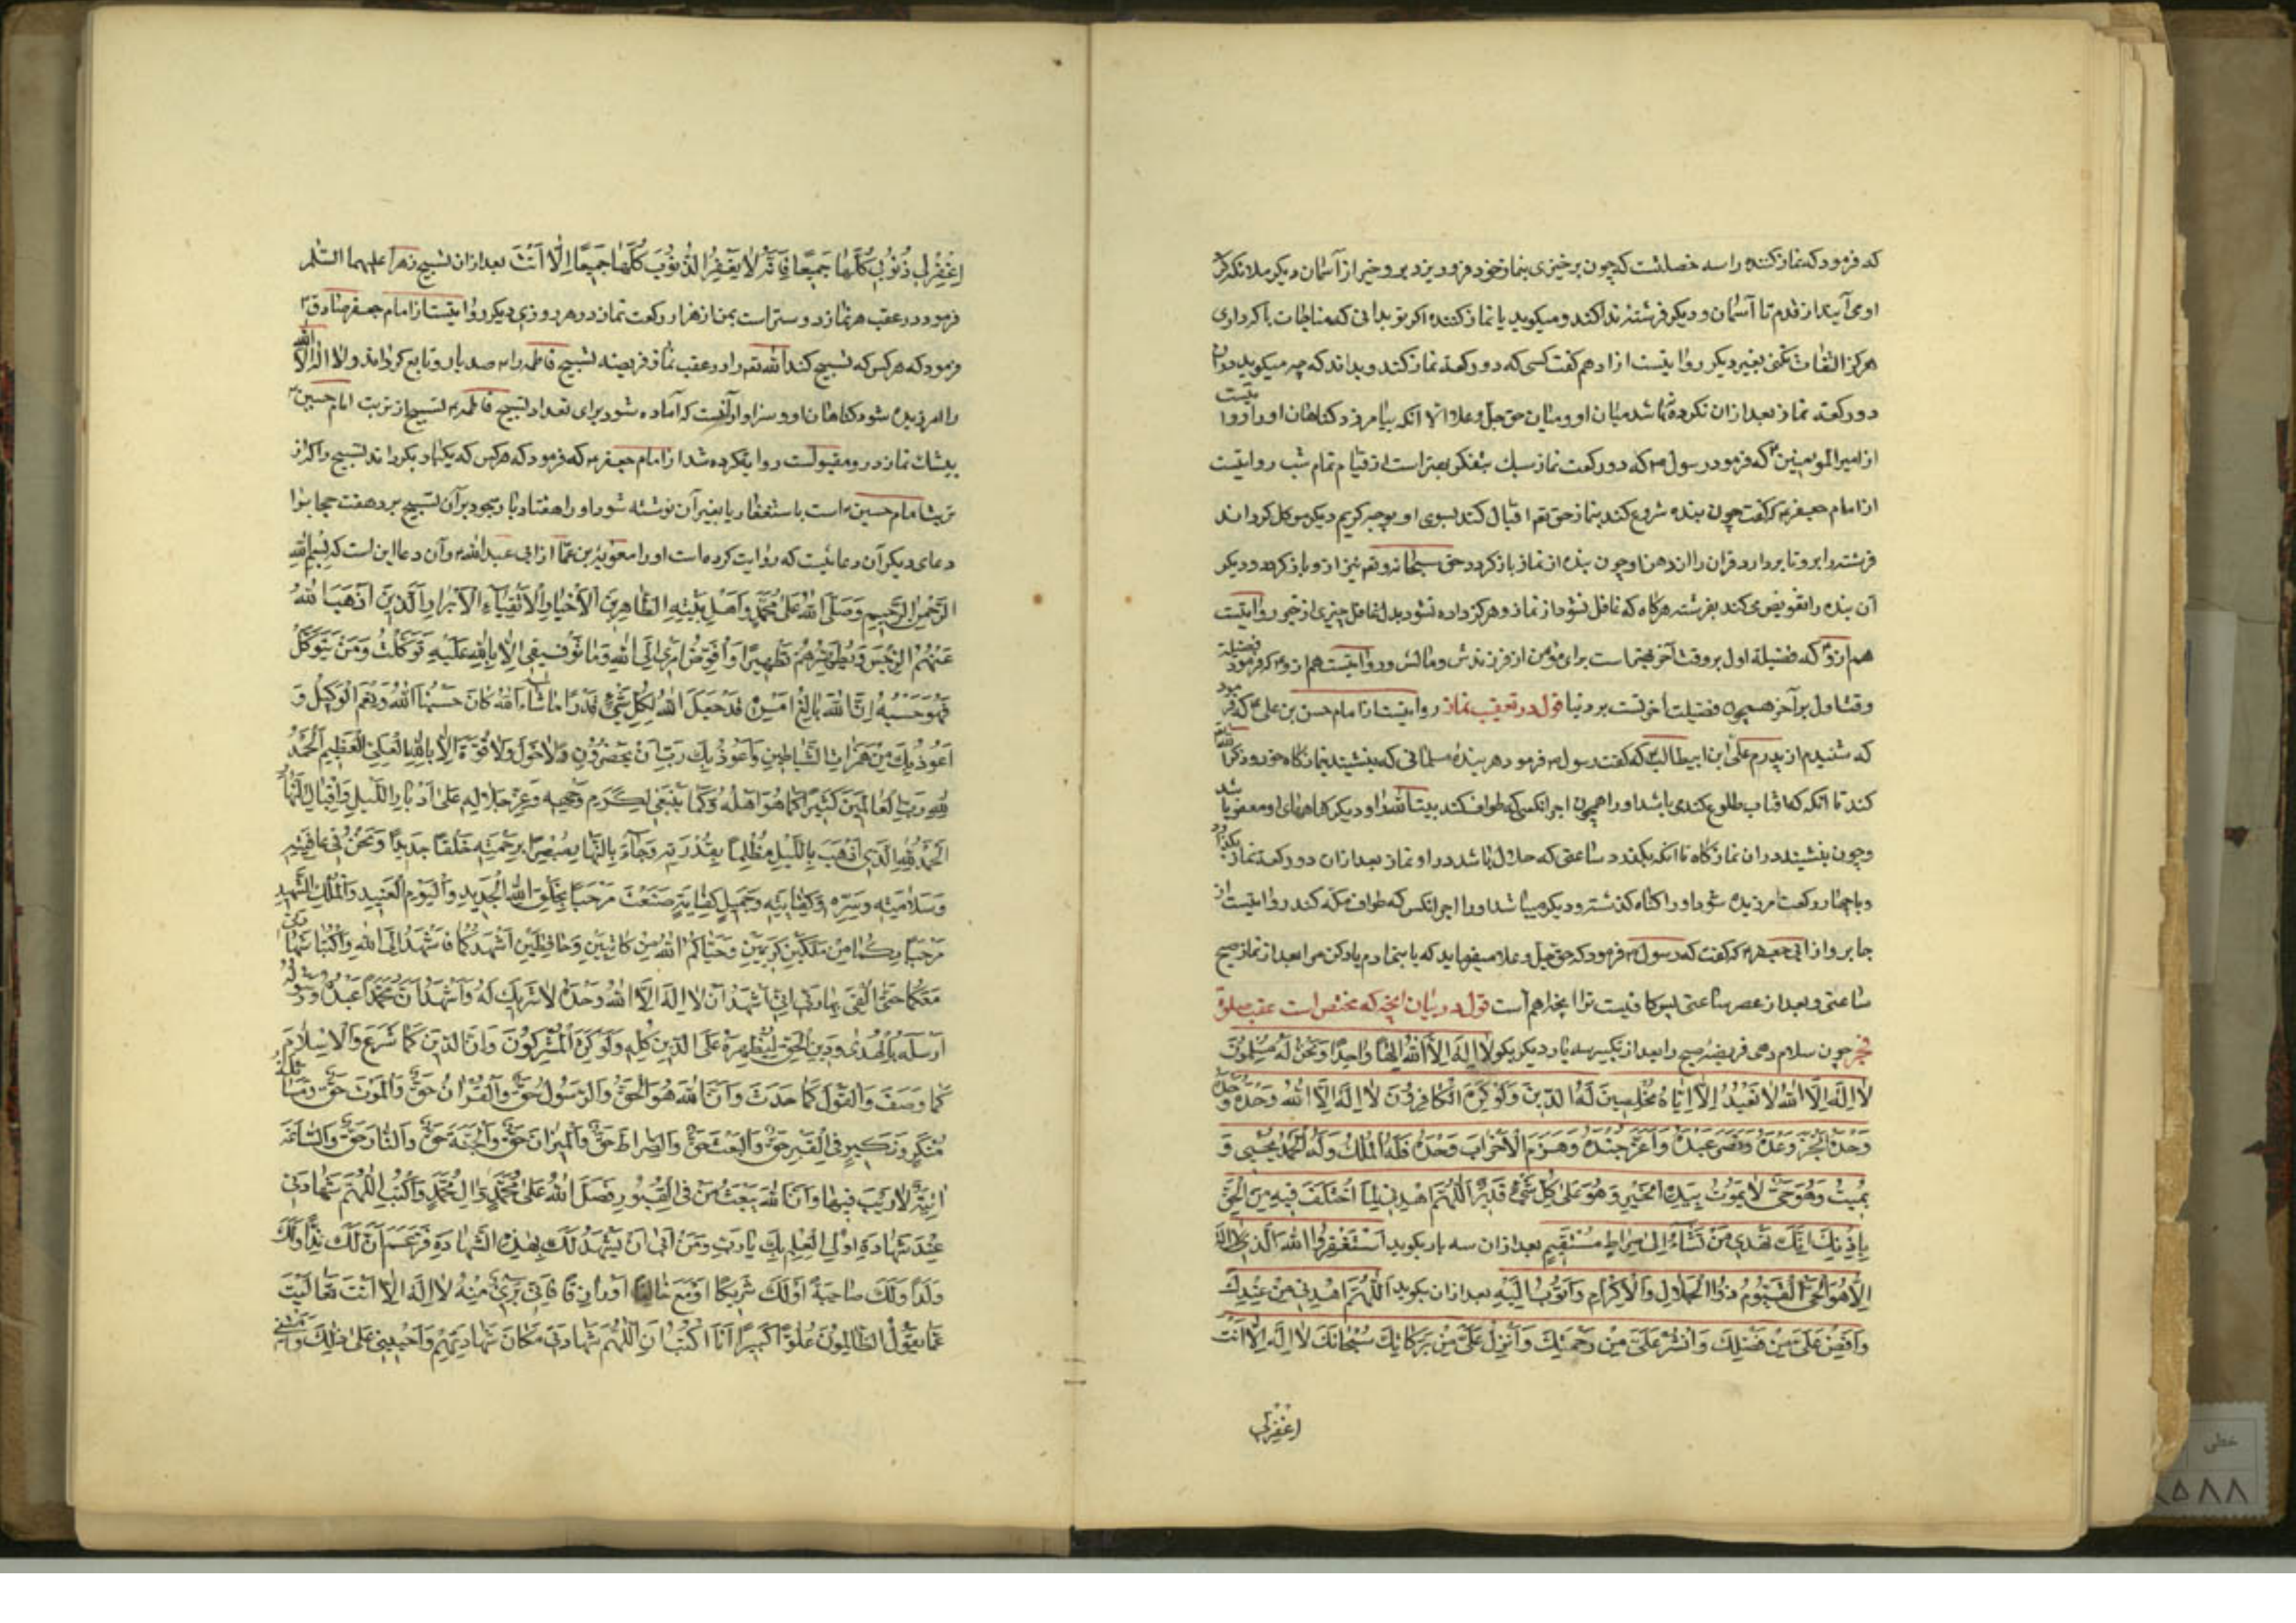 که فرمود که نماز کننده را سه خصلتست که چون برخیزی بنماز خود فرود ریزد برو خیر از آسمان دیگر ملائکه کرد
او می‌آیند از قدم تا آسمان و دیگر فرشتهٔ ندا کند و میگوید یا نماز کننده اگر تو بدانی که مناجات با که داری
هرگز التفات نکنی بغیر دیگر روایتست از ادهم گفت کسی که دو رکعة نماز کند و بداند که چه میگوید در آن
دو رکعة نماز بعد از آن نکرده باشد میان او و میان حق جل و علا الا انکه بیامرزد گناهان او را و روایتست
از امیرالمومنین که فرمود رسول که دو رکعت نماز سبک بتفکر بهتر است از قیام تمام شب روایتست
از امام جعفر که گفت چون بنده شروع کند بنماز حق تعم اقبال کند بسوی او بوجه کریم دیگر موکل گرداند
فرشته را برو تا بردارد قران را از دهن او چون بنده از نماز باز گردد حق سبحانه و تعم نیز از و باز گردد و دیگر
آن بنده را تفویض می‌کند بفرشته هرکاه که غافل نشود از نماز و هرگز داده نشود بدل غافل چیزی از خیر روایتست
هم ازو که فضیلة اول بر وقت آخر بهتر است برای مؤمن از فرزندش و مالش و روایتست هم ازو که فرمود فضیلة
وقت اول بر آخر همچون فضیلت آخرتست بر دنیا قول در تعقیب نماز روایتست از امام حسن بن علی که فرمود
که شنیدم از پدرم علی ابن ابیطالب که گفت رسول فرمود هر بندهٔ مسلمانی که بنشیند بنمازگاه خود و ذکر الله
کند تا انکه که افتاب طلوع کند می باشد او را همچون اجر انکس که طواف کند بیت الله را و دیگر گناهان او مغفور باشد
و چون بنشیند در ان نمازگاه تا انکه بگذرد ساعتی که حلال باشد در او نماز بعد از ان دو رکعة نماز بگذارد
و یا چهار رکعت امرزیده شود او را گناه گذشته و دیگر میباشد او را اجر انکس که طواف مکه کند روایتست از
جابر و از ابی جعفر که گفت که رسول فرمود که حق جل و علا میفرماید که یا بنی ادم یاد کن مرا بعد از نماز صبح
ساعتی و بعد از عصر ساعتی پس کافیست ترا انچه اهم است قول در بیان انچه که مختص است عقب صلوة
فجر چون سلام دهی فریضهٔ صبح را بعد از تکبیر سه بار دیگر بگو لا اله الا الله الها واحدا و نحن له مسلمون
لا اله الا الله لا نعبد الا ایاه مخلصین له الدین ولو کره الکافرون لا اله الا الله وحده
وحده انجز وعده و نصر عبده واعز جنده و هزم الاحزاب وحده فله الملک وله الحمد یحیی و
یمیت وهو حی لا یموت بیده الخیر وهو علی کل شیء قدیر اللهم اهدنی لما اختلف فیه من الحق
باذنک انک تهدی من تشاء الی صراط مستقیم بعد از ان سه بار بگوید استغفر الله الذی لا اله
الا هو الحی القیوم ذو الجلال والاکرام واتوب الیه بعد از ان بگوید اللهم اهدنی من عندک
وافض علی من فضلک وانشر علی من رحمتک وانزل علی من برکاتک سبحانک لا اله الا انت
اغفرلی
اغفر لی ذنوبی کلها جمیعا فانه لا یغفر الذنوب کلها جمیعا الا انت بعد از ان تسبیح زهرا علیهما السلم
فرمود در عقب هر نماز دوستر است بمن از هزار رکعت نماز در هر روزی دیگر روایتست از امام جعفر صادق
فرمود که هر کس که تسبیح کند الله تعم را در عقب نماز فریضه تسبیح فاطمه را صد بار و تابع گرداند ولا اله الا الله
را امرزیده شود گناهان او و سزاوار آنست که آماده شود برای تعداد تسبیح فاطمه تسبیح از تربت امام حسین
بیشک نماز در و مقبولست روایة کرده شد از امام جعفر که فرمود که هر کس که یکبار بگرداند تسبیح را که از
تربت امام حسین است باستغفار یا بغیر آن نوشته شود او را هفتاد بار و سجود بر آن تسبیح برد هفت حجابرا
دعای دیگر آن دعائیست که روایت کرده است او را معویة بن عمار از ابی عبدالله و آن دعا این است که بسم الله
الرحمن الرحیم وصلی الله علی محمد واهل بیته الطاهرین الاخیار الاتقیاء الابرار الذین اذهب الله
عنهم الرجس وطهرهم تطهیرا وافوض امری الی الله وما توفیقی الا بالله علیه توکلت ومن یتوکل
فهو حسبه ان الله بالغ امره قد جعل الله لکل شیء قدرا ما شاء الله کان حسبنا الله ونعم الوکیل و
اعوذ بک من همزات الشیاطین واعوذ بک رب ان یحضرون ولا حول ولا قوة الا بالله العلی العظیم الحمد
لله رب العالمین کثیرا کما هو اهله وکما ینبغی لکرم وجهه وعز جلاله علی ادبار اللیل واقبال النهار
الحمد لله الذی اذهب باللیل مظلما بقدرته وجاء بالنهار مبصرا برحمته خلقا جدیدا ونحن فی عافیته
وسلامته وستره وکفایته وجمیل صنعه مرحبا بخلق الله الجدید والیوم العتید والملک الشهید
مرحبا بکما من ملکین کریمین وحیاکما الله من کاتبین وحافظین اشهدکما فاشهدا لی الله واکتبا شهادتی
معکما حتی القی بها ربی انی اشهد ان لا اله الا الله وحده لا شریک له واشهد ان محمدا عبده ورسوله
ارسله بالهدی ودین الحق لیظهره علی الدین کله ولو کره المشرکون وان الدین کما شرع والاسلام
کما وصف والقول کما حدث وان الله هو الحق والرسول حق والقران حق والموت حق ومسائلة
منکر ونکیر فی القبر حق والبعث حق والصراط حق والمیزان حق والجنة حق والنار حق والساعة
اتیة لا ریب فیها وان الله یبعث من فی القبور فصل الله علی محمد وال محمد واکتب اللهم شهادتی
عندک شهادة اولی العلم بک یا رب ومن ابی ان یشهد لک بهذه الشهادة وزعم ان لک ندا ولک
ولدا ولک صاحبة او لک شریکا او مع خالقا او رازقا فانی بریء منه لا اله الا انت تعالیت
عما یقول الظالمون علوا کبیرا فاکتب اللهم شهادتی مکان شهادتهم واحینی علی ذلک وامتنی
خطی
۸۵۸۸